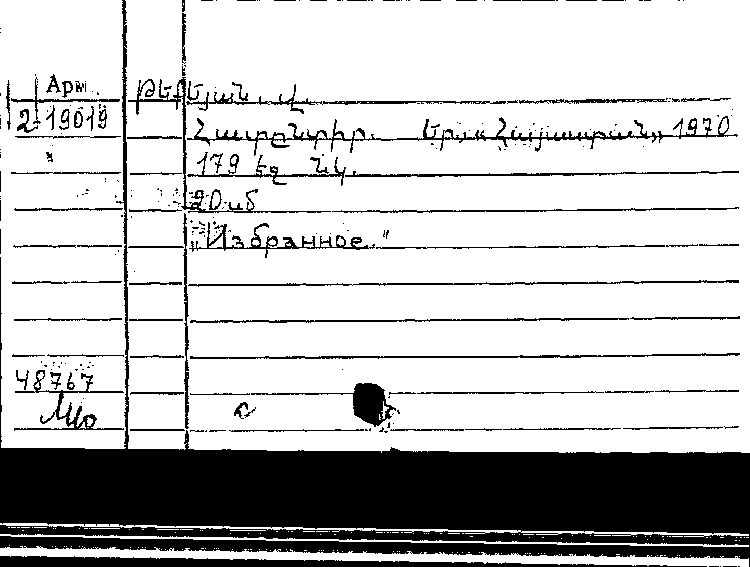 Арм.
Թեքեյան. Վ.
2-19019
Հատընտիր. Եր. «Հայաստան» 1970
179 էջ նկ.
20
"Избранное."
48767